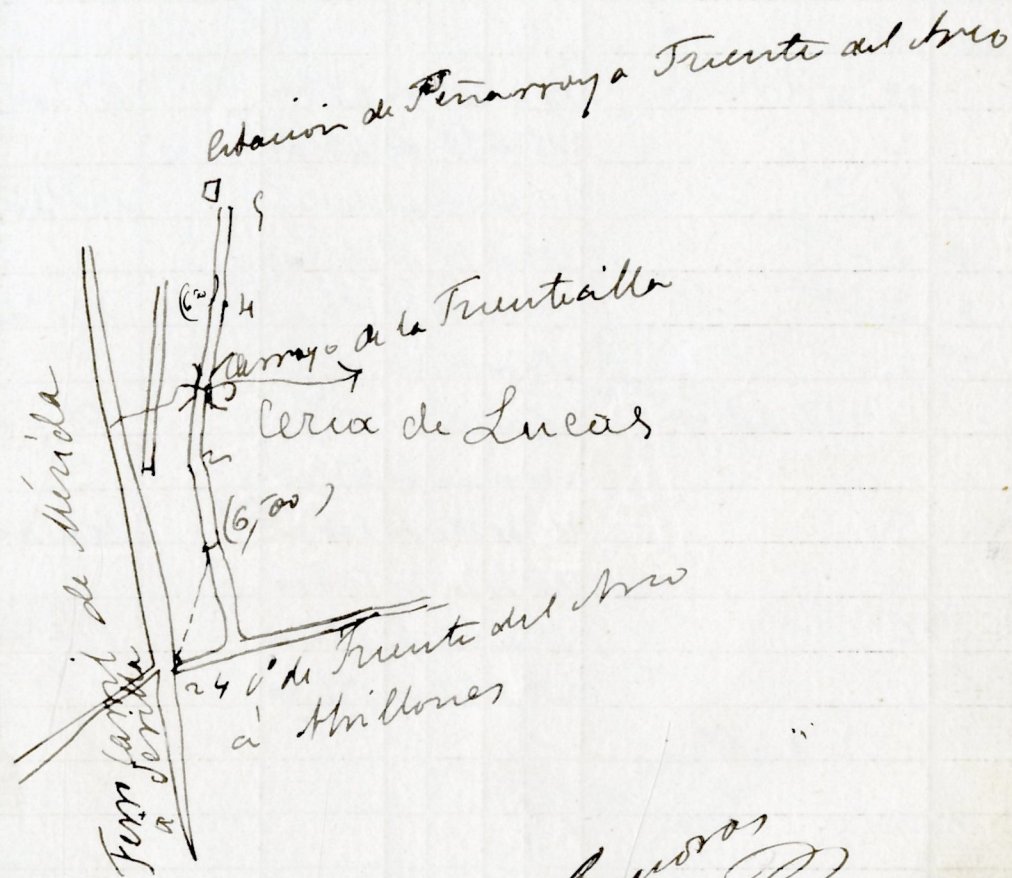 Estación de Peñarroya Fuente del Arco
5
4
Arroyo de la Fuentecilla
Cerca de Lucas
2
(6,00)
24 Cº de Fuente del Arco
á Ahillones
Ferro Carril de Mérida
á Sevilla